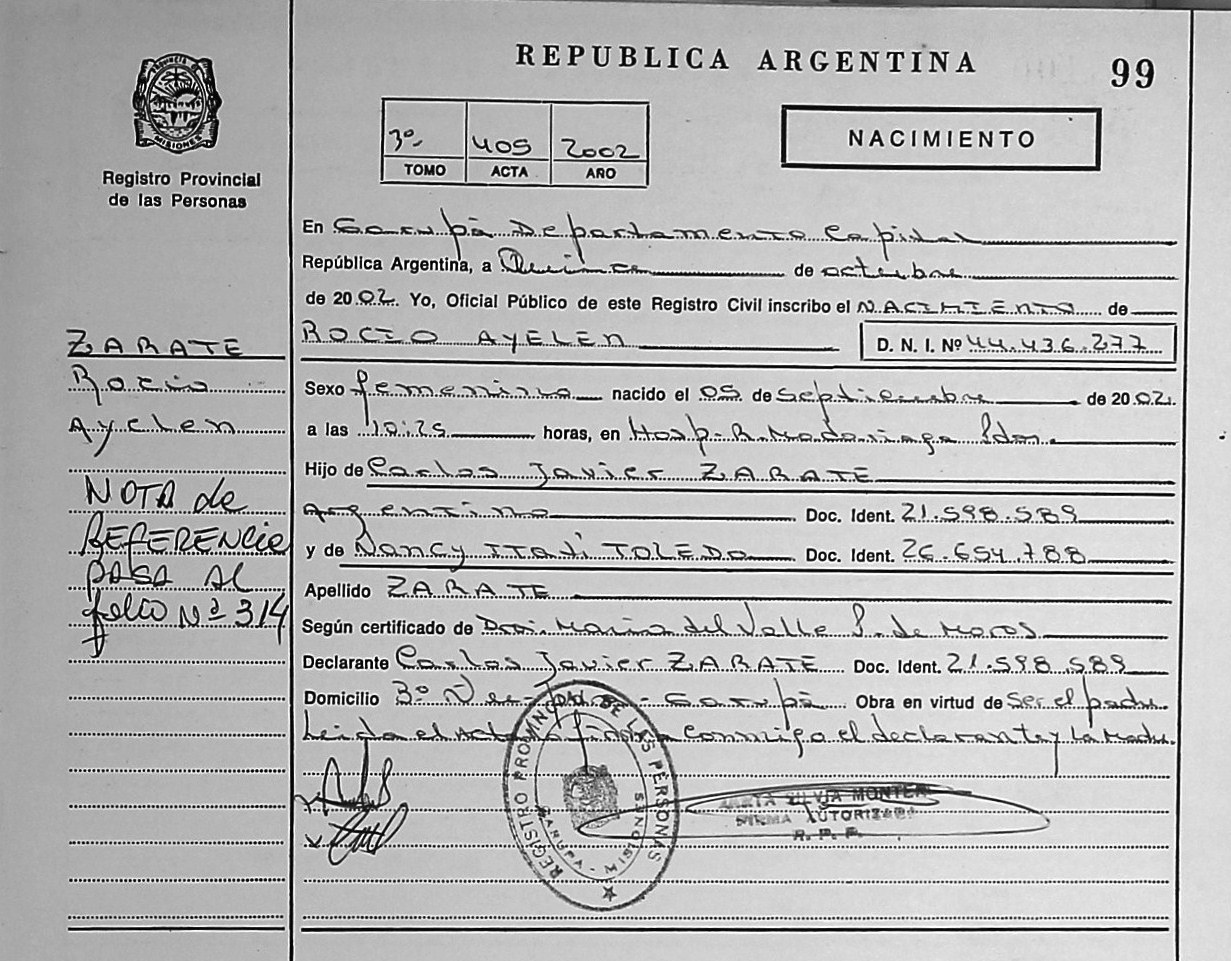 REPUBLICA ARGENTINA
99
PROVINCIA DE
MISIONES
Registro Provincial
de las Personas
3º- 405 2002
TOMO ACTA AÑO
NACIMIENTO
En Garupá Departamento Capital
República Argentina, a Quince de octubre
de 2002. Yo, Oficial Público de este Registro Civil inscribo el NACIMIENTO de
ROCIO AYELEN D. N. I. Nº 44.436.277
Sexo femenino nacido el 05 de septiembre de 2002.
a las 10:25 horas, en Hosp. R. Madariaga Pdas.
Hijo de Carlos Javier ZARATE
Argentino Doc. Ident. 21.598.589
y de Nancy ITatí TOLEDO Doc. Ident. 26.654.788
Apellido ZARATE
Según certificado de Dra. María del Valle P. de Moros
Declarante Carlos Javier ZARATE Doc. Ident. 21.598.589
Domicilio 3º - Garupá Obra en virtud de ser el padre.
Leída el Acta firman conmigo el declarante y la Madre.
ZARATE
Rocio
Ayelen
NOTA de
REFERENCIA
PASA AL
folio Nº 314
REGISTRO PROVINCIAL DE LAS PERSONAS
GARUPA - MISIONES
SILVIA MONTE
FIRMA AUTORIZADA
R. P. P.